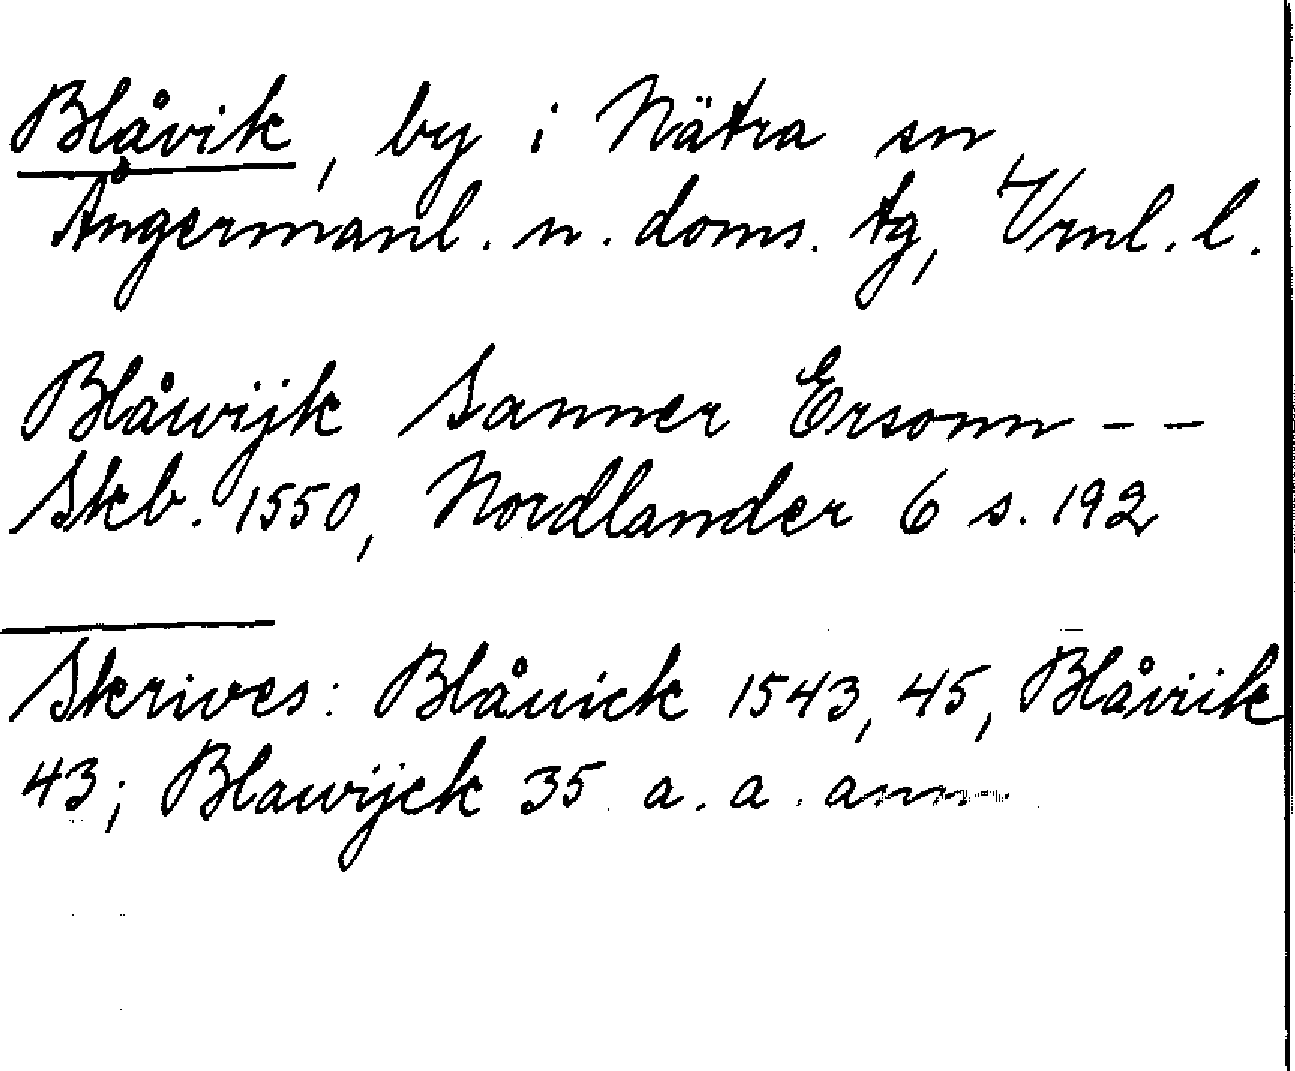 Blåvik, by i Nätra sn
Ångermanl. n. doms. tg, Vrnl. l.
Blåwijk Sanner Ersonn - -
Skb. 1550, Nordlander 6 s. 192
Skrives: Blåuick 1543, 45, Blåviik
43; Blawijck 35 a. a. ann